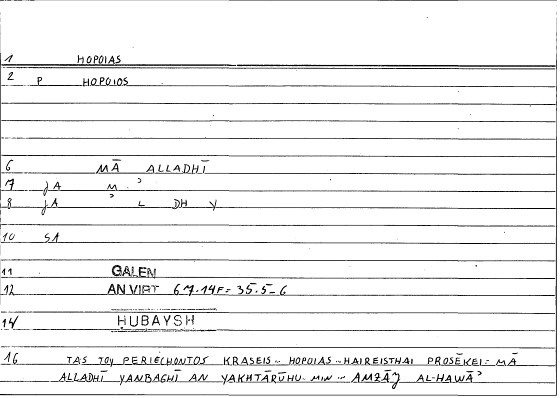 1 HOPOIAS
2 P HOPOIOS
6 MĀ ALLADHĪ
7 JA M ʾ
8 JA ʾ L DH Y
10 SA
11 GALEN
12 AN VIRT 67.14F = 35.5-6
14 HUBAYSH
16 TAS TOY PERIECHONTOS KRASEIS - HOPOIAS - HAIREISTHAI PROSĒKEI = MĀ
ALLADHĪ YANBAGHĪ AN YAKHTĀRŪHU - MIN - AMZĀJ AL-HAWĀʾ